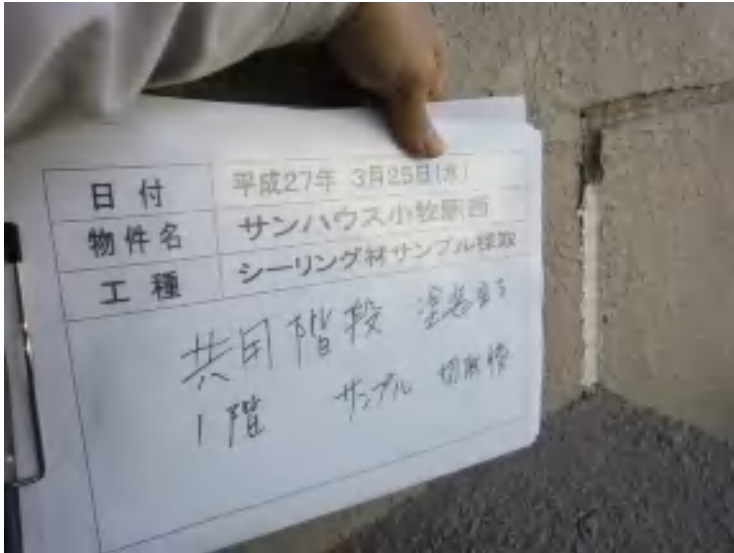 日付 平成27年 3月25日(水)
物件名 サンハウス小牧駅西
工種 シーリング材サンプル採取
共用階段 塗装
1階 サンプル 切取後